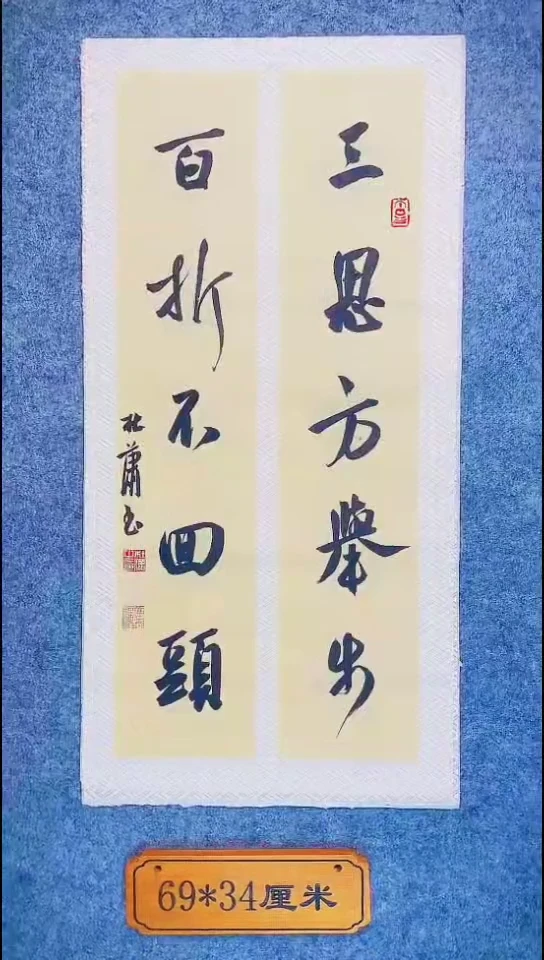 三思方舉步
百折不回頭
杜蕭书
69*34厘米